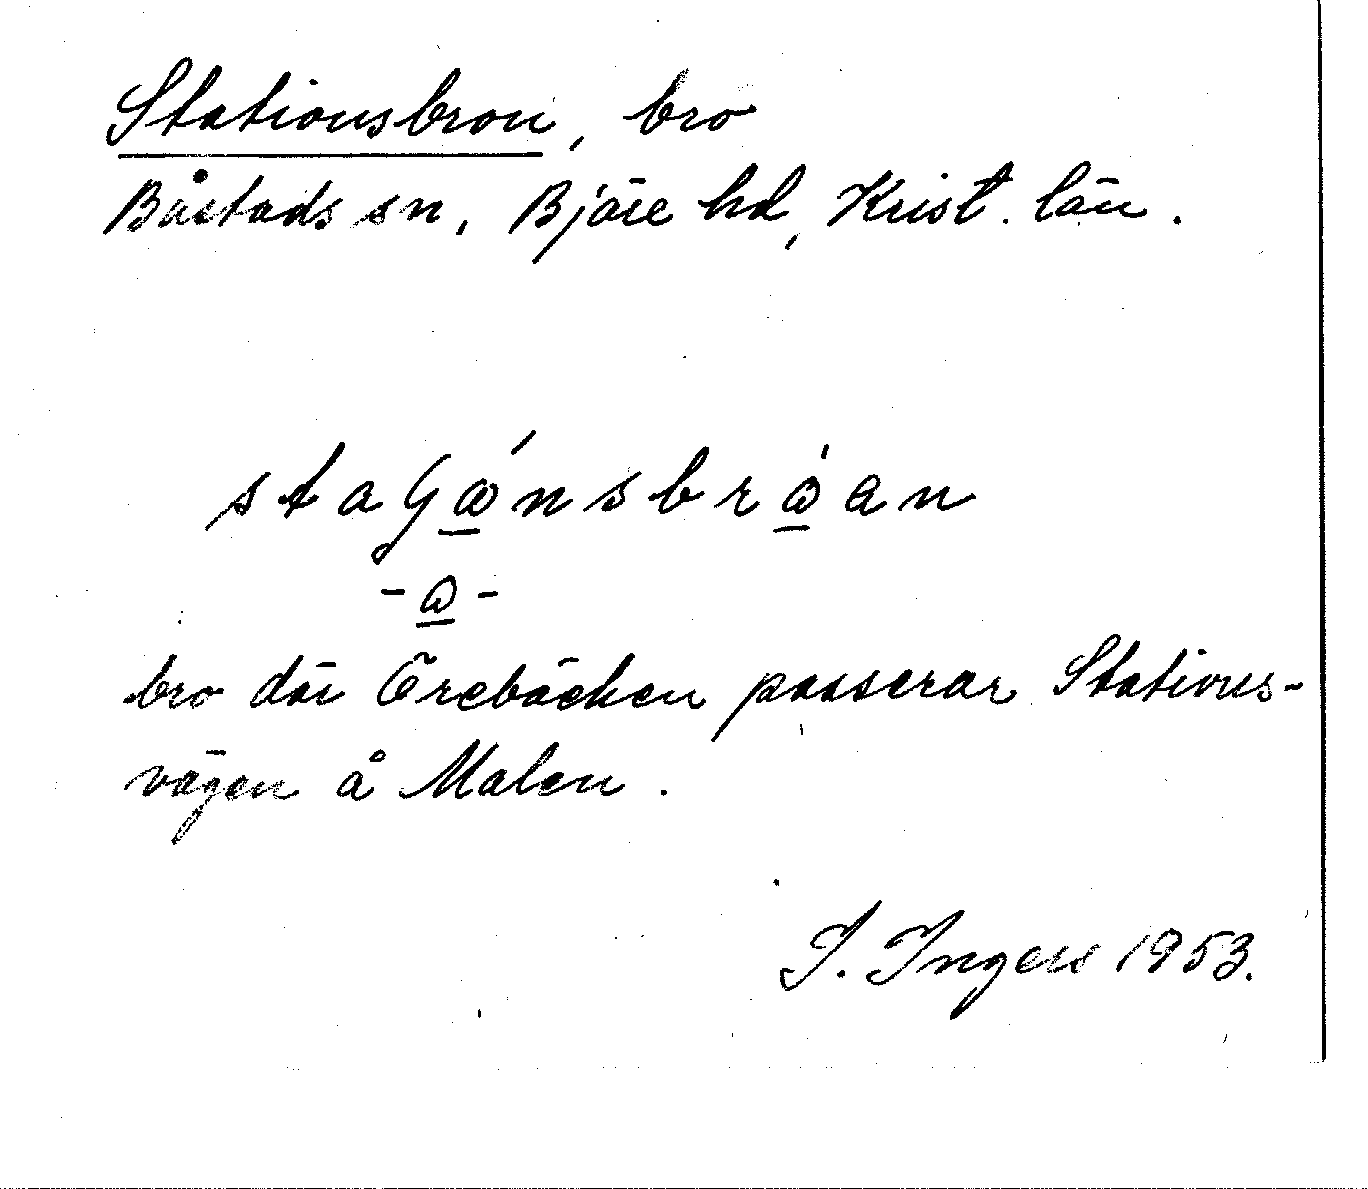 Stationsbron, bro
Båstads sn, Bjäre hd, Krist. län.
bro där Örebäcken passerar Stations-
vägen å Malen.
I. Ingers 1953.